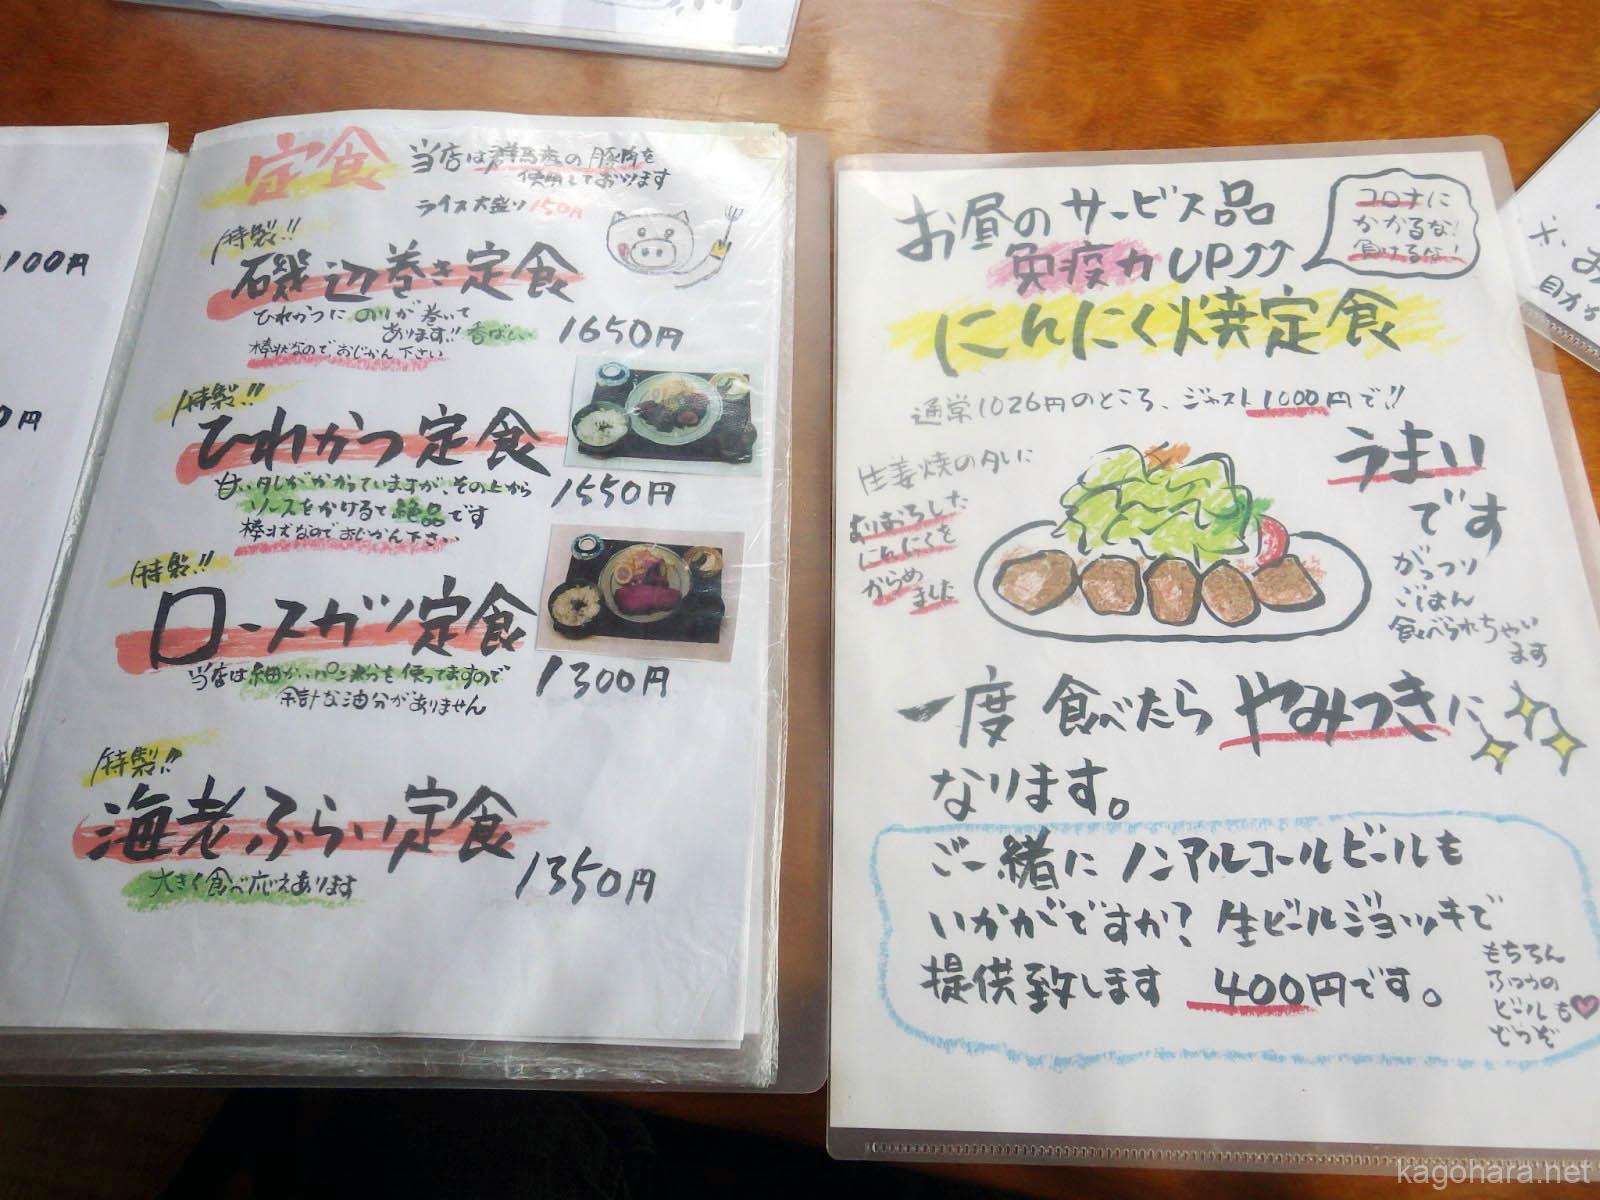 100円
0円
定食
当店は群馬産の豚肉を
使用しております
ライス大盛り150円
特製!!
磯辺巻き定食
ひれかつにのりが巻いて
あります!!香ばしい
1650円
棒状なのでおじかん下さい
特製!!
ひれかつ定食
甘いタレがかかっていますが、その上から
ソースをかけると絶品です
1550円
棒状なのでおじかん下さい
特製!!
ロースカツ定食
当店は細かいパン粉を使ってますので
余計な油分がありません
1300円
特製!!
海老ふらい定食
大きく食べ応えあります
1350円
お昼のサービス品
免疫力UP↑↑
コロナに
かかるな!
負けるな!
にんにく焼定食
通常1026円のところ、ジャスト1000円で!!
生姜焼のタレに
すりおろした
にんにくを
からめ
ました
うまい
です
がっつり
ごはん
食べられちゃい
ます
一度食べたらやみつきに
なります。
ご一緒にノンアルコールビールも
いかがですか?生ビールジョッキで
提供致します 400円です。
もちろん
ふつうの
ビールも
どうぞ
kagohara.net